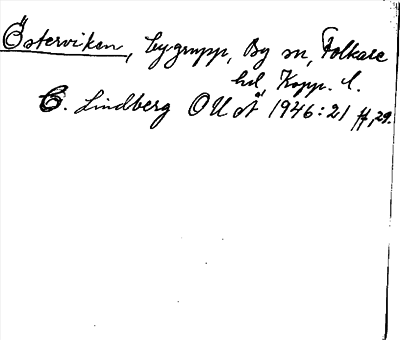 Österviken, bygrupp, By sn, Folkare
hd, Kopp. l.
C. Lindberg OUoÅ 1946:21 ff, 29.